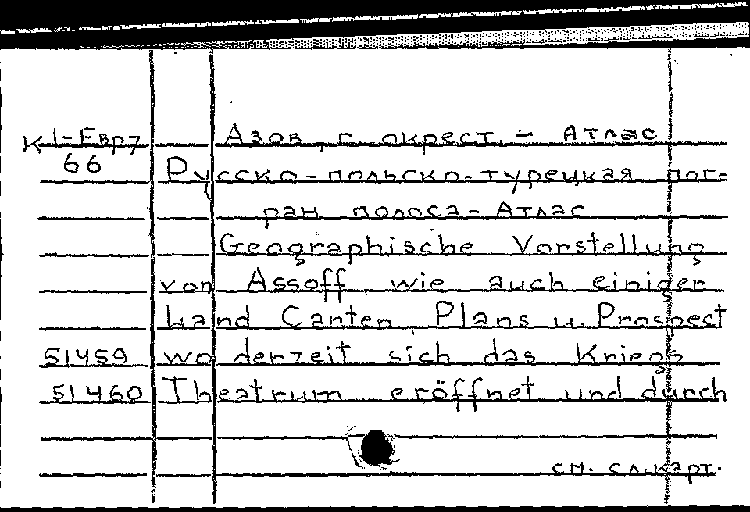 К 1-Евр7
66
Азов, г. окрест. - Атлас
Русско-польско-турецкая пог-
ран полоса - Атлас
Geographische Vorstellung
von Assoff wie auch einiger
Land Canten, Plans u. Prospect
51459 wo derzeit sich das Kriegs
51460 Theatrum eröffnet und durch
см. сл. карт.